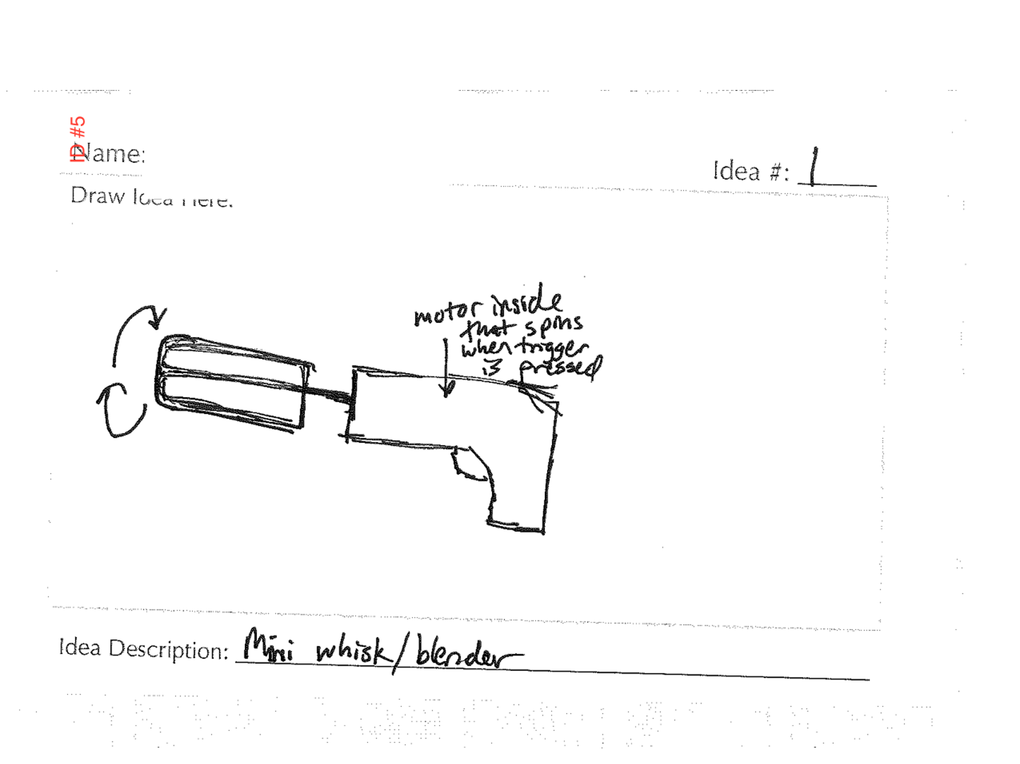 ID #5
Name:
Idea #: 1
Draw Idea Here:
motor inside
that spins
when trigger
is pressed
Idea Description: Mini whisk/blender